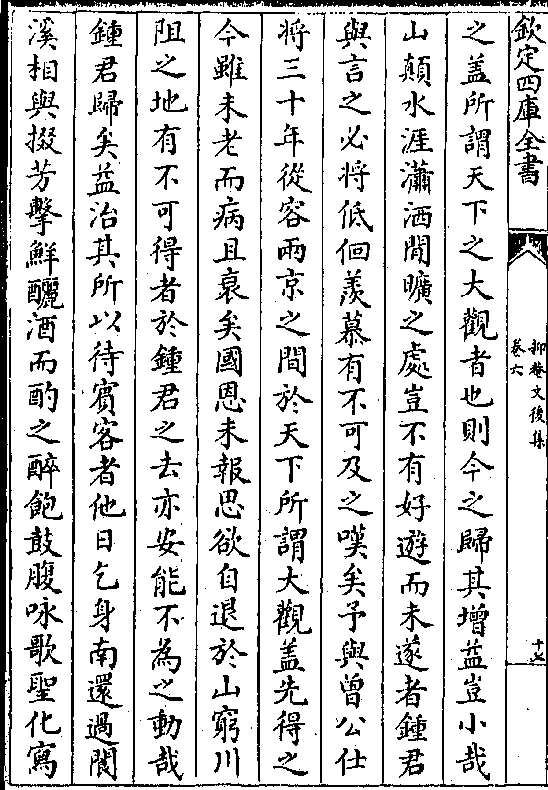 欽定四庫全書
抑菴文後集
卷六
十七
之蓋所謂天下之大觀者也則今之歸其增益豈小哉
山顛水涯瀟洒閒曠之處豈不有好遊而未遂者鍾君
與言之必將低佪羨慕有不可及之嘆矣予與曾公仕
將三十年從容兩京之間於天下所謂大觀盖先得之
今雖未老而病且衰矣國恩未報思欲自退於山窮川
阻之地有不可得者於鍾君之去亦安能不為之動哉
鍾君歸矣益治其所以待賓客者他日乞身南還過閬
溪相與掇芳擊鮮釃酒而酌之醉飽鼓腹咏歌聖化寫